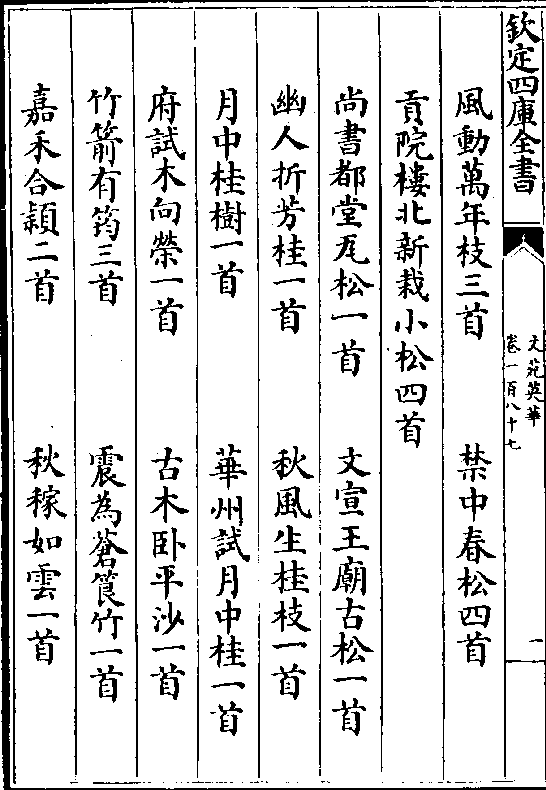 欽定四庫全書
文苑英華
卷一百八十七
一
風動萬年枝三首 禁中春松四首
貢院樓北新栽小松四首
尚書都堂瓦松一首 文宣王廟古松一首
幽人折芳桂一首 秋風生桂枝一首
月中桂樹一首 華州試月中桂一首
府試木向榮一首 古木卧平沙一首
竹箭有筠三首 震為蒼筤竹一首
嘉禾合穎二首 秋稼如雲一首